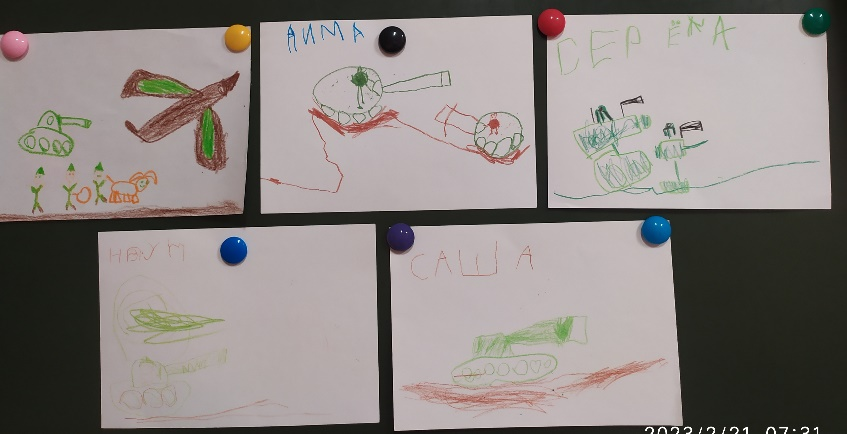 ДИМА
СЕРЁЖА
НАУМ
САША
2023/2/21 07:31